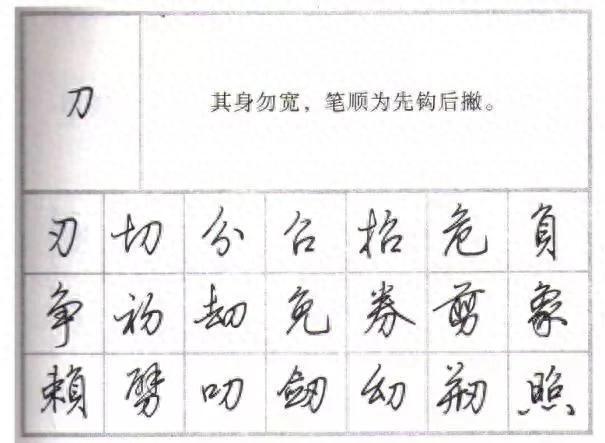 刀 其身勿宽，笔顺为先钩后撇。
刃 切 分 召 招 危 負
争 初 刼 免 券 剪 象
賴 劈 叨 劒 幼 剏 照